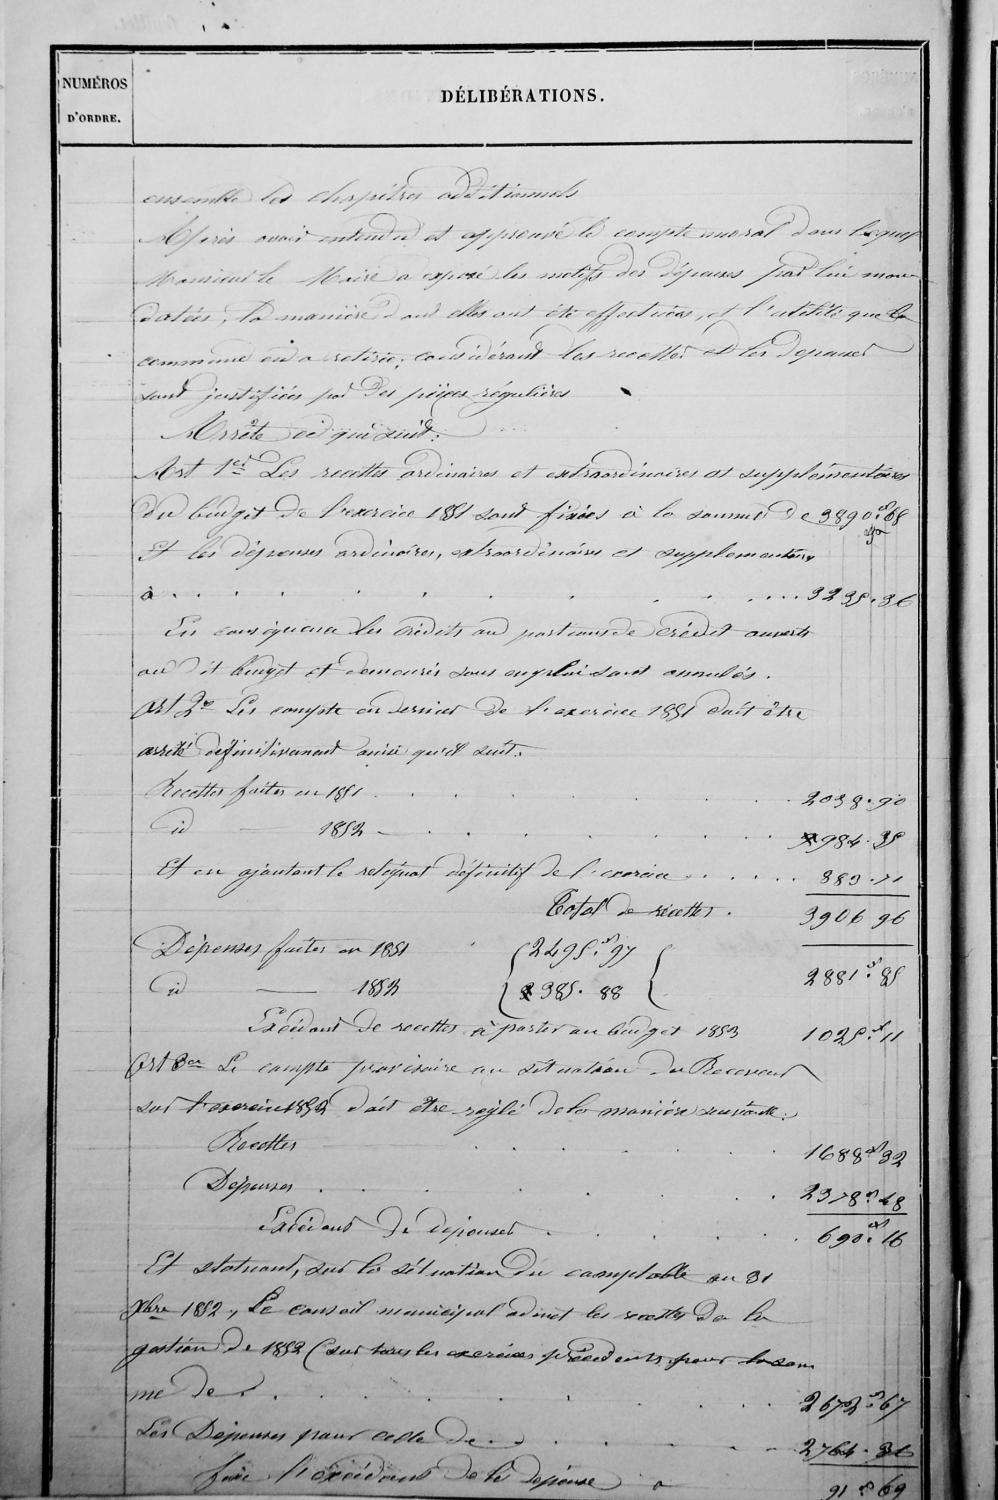 NUMÉROS
D'ORDRE.
DÉLIBÉRATIONS.
ensemble les chapitres additionnels
Après avoir entendu et approuvé le compte moral dans lequel
Monsieur le Maire a exposé les motifs des dépenses par lui man
datées, la manière dont elles ont été effectuées, et l'utilité que la
commune en a retirée; considérant les recettes et les depenses
sont justifiées par des pièces régulières
Arrête ce qui suit:
Art 1er Les recettes ordinaires et extraordinaires et supplémentaires
du budget de l'exercice 1851 sont fixées à la somme de 3890. 68
Et les dépenses ordinaires, extraordinaires et supplementaires
à . . . . . . . . . . 3235. 36
En conséquence les crédits ou portions de crédit ouverts
au dit budget et demeurés sans emploi sont annulés.
Art 2e Les compte en dernier de l'exercice 1851 doit être
arrêté définitivement ainsi qu'il suit.
Recettes faites en 1851 . . . . . . 2038. 90
id — 1852 — . . . . . . 984. 35
Et en ajoutant le reliquat définitif de l'exercice . . . . . 883. 71
Total de recettes . 3906 96
Dépenses faites en 1851 2495f. 97
2881f. 85
id — 1852 385. 88
Excédant de recettes à porter au budget 1853 1025f. 11
Art 3er Le compte provisoire ou situation du Receveur
sur l'exercice 1852 doit être réglé de la manière suivante:
Recettes . . . . . . 1688f 32
Dépenses . . . . . 2378f. 48
Excédant de depenses . . . . . 690f. 16
Et statuant, sur la situation du comptable au 31
Xbre 1852, Le conseil municipal admet les recettes de la
gestion de 1852 (sur tous les exercices précédents, pour la som
me de . . . . . . . 2672f. 67
Les Dépenses pour celle de . . . . . 2764. 36
fixe l'excédant de la depense à 91f 69